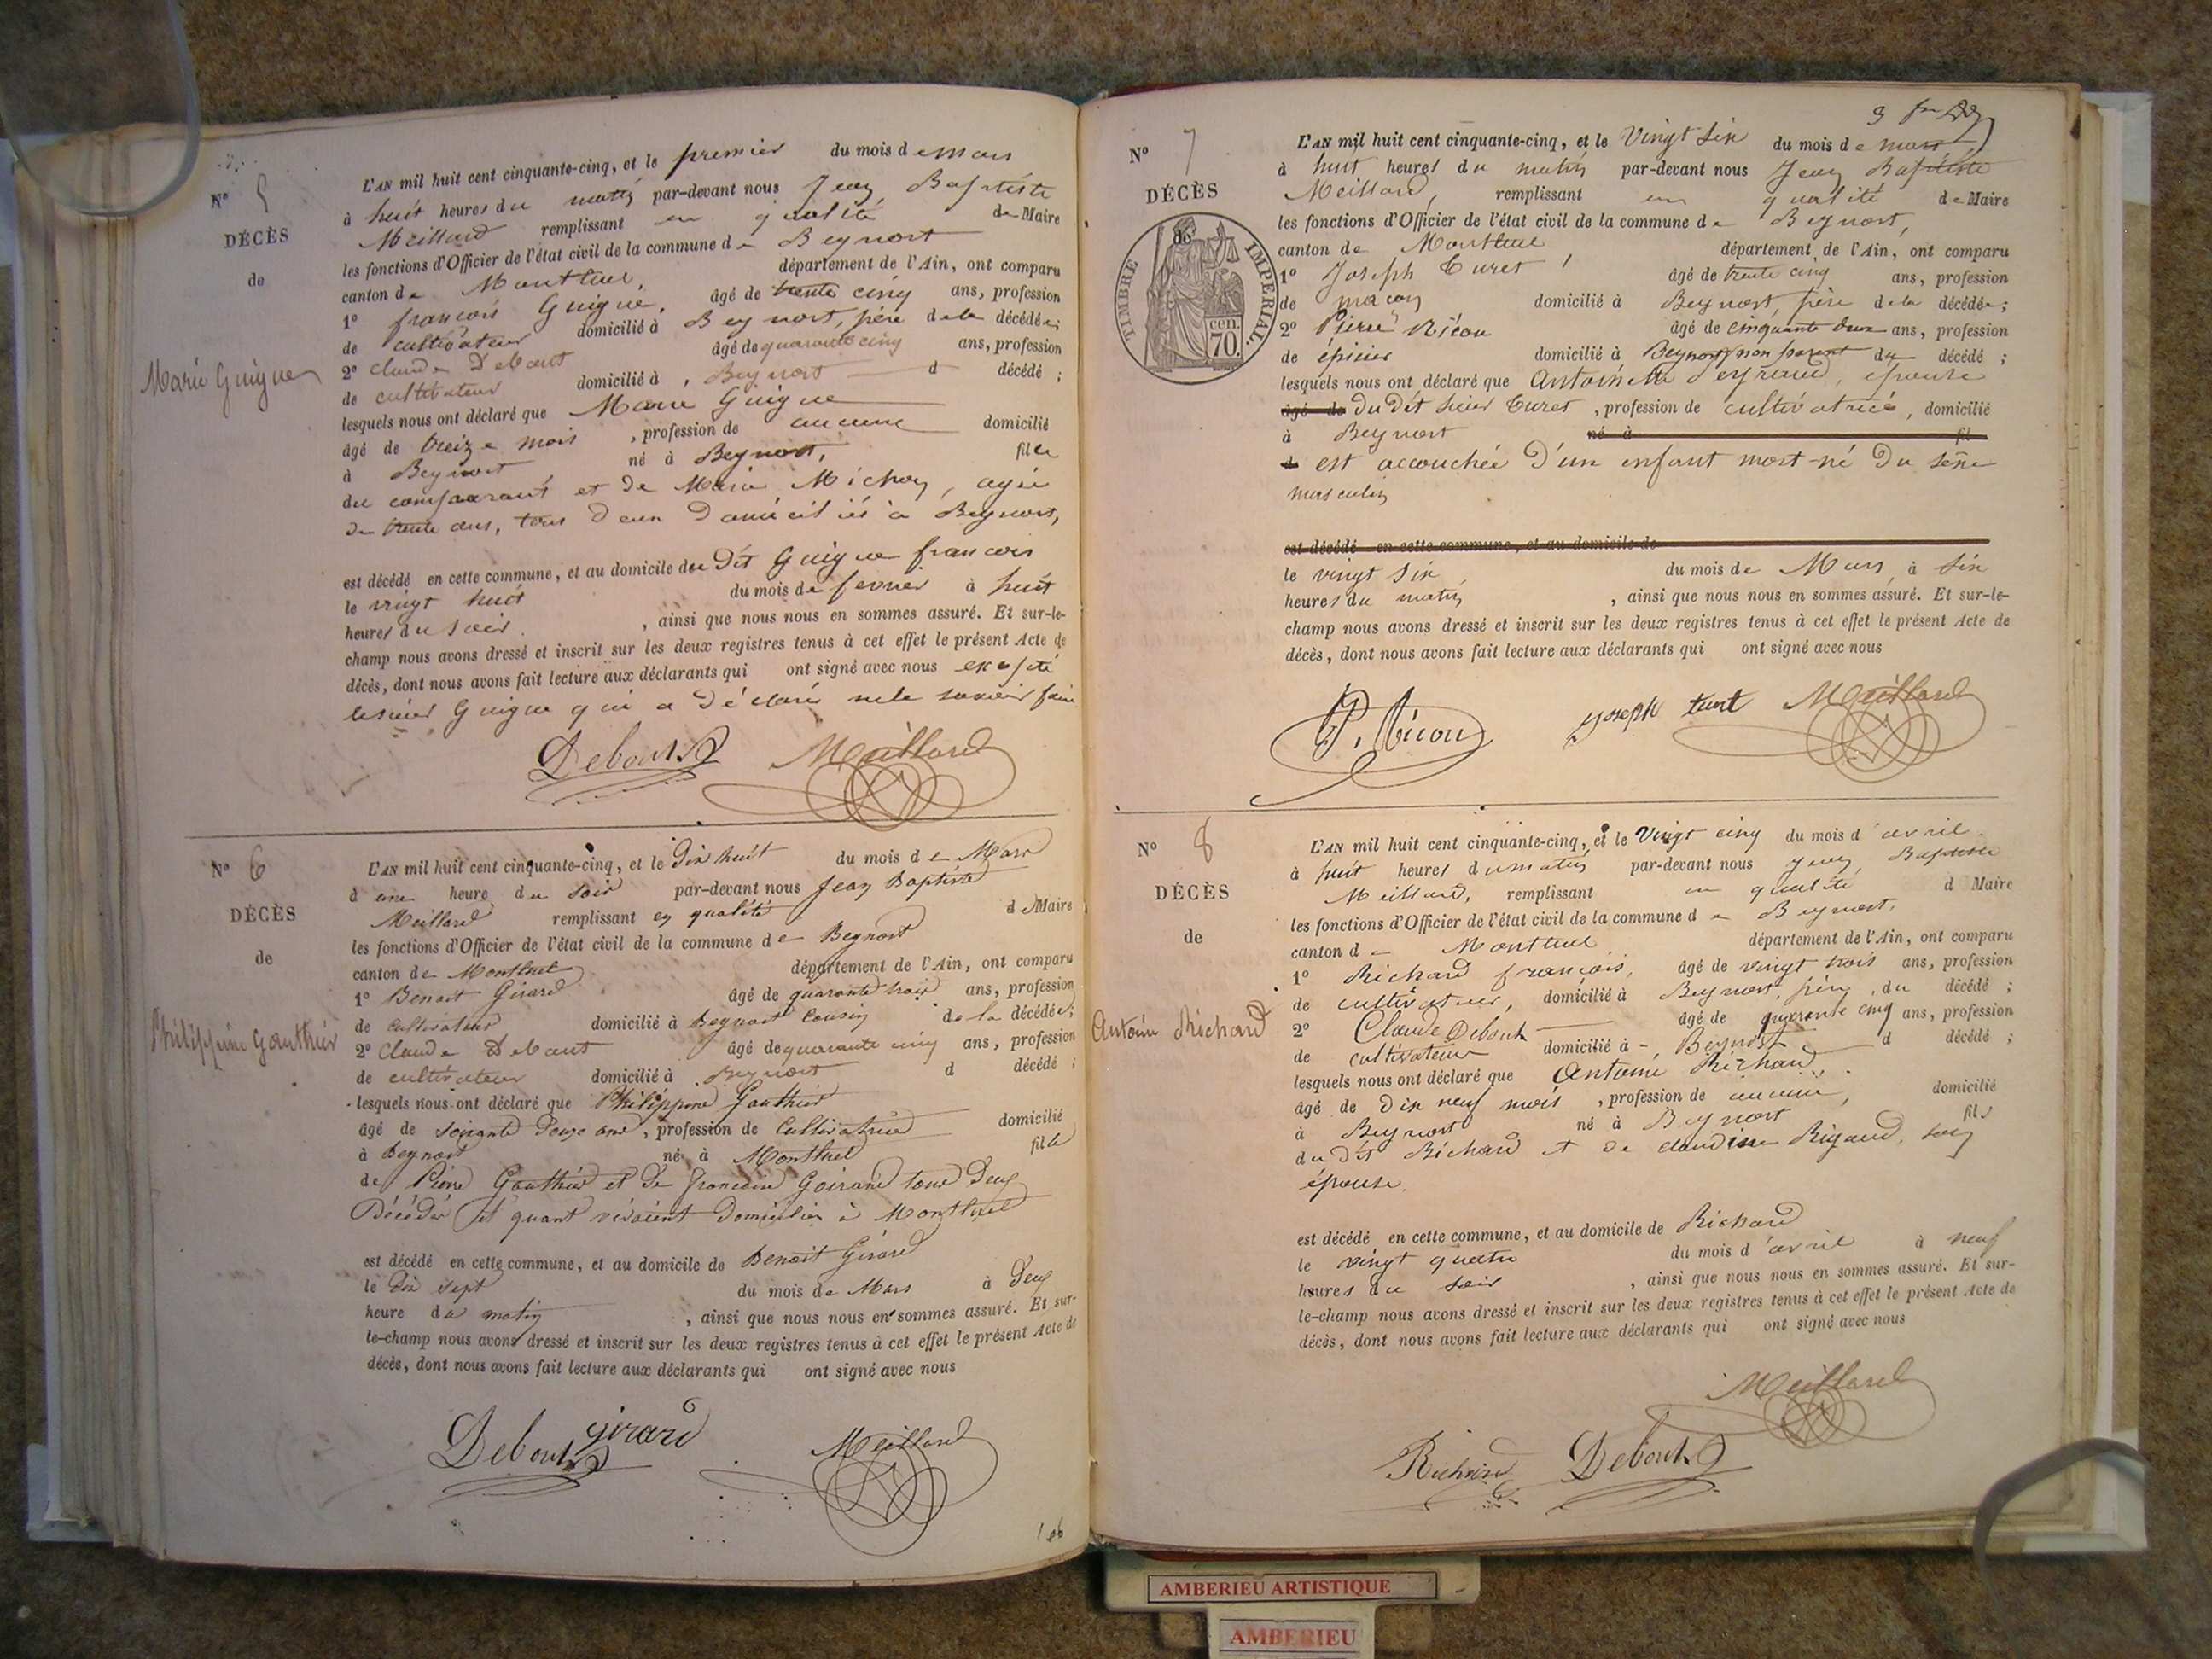 N° 5
DÉCÈS
de
Marie Guigue
L'AN mil huit cent cinquante-cinq, et le premier du mois de mars
à huit heures du matin par-devant nous Jean Baptiste
Meillard remplissant en qualité de Maire
les fonctions d'Officier de l'état civil de la commune de Beynost
canton de Montluel, département de l'Ain, ont comparu
1° françois Guigue, âgé de trente cinq ans, profession
de cultivateur domicilié à Beynost, père de la décédée;
2° Claude Debout âgé de quarante cinq ans, profession
de cultivateur domicilié à, Beynost d décédé ;
lesquels nous ont déclaré que Marie Guigue
âgé de treize mois, profession de aucune domicilié
à Beynost né à Beynost, fille
du comparant et de Marie Michon, agée
de trente ans, tous deux domiciliés à Beynost,
est décédé en cette commune, et au domicile du dit Guigue francois
le vingt huit du mois de fevrier à huit
heures du soir, ainsi que nous nous en sommes assuré. Et sur-le-
champ nous avons dressé et inscrit sur les deux registres tenus à cet effet le présent Acte de
décès, dont nous avons fait lecture aux déclarants qui ont signé avec nous excepté
le sieur Guigue qui a déclaré ne le savoir faire
Debout Meillard
N° 6
DÉCÈS
de
Philippine Gauthier
L'AN mil huit cent cinquante-cinq, et le dix huit du mois de Mars
à une heure du soir par-devant nous Jean Baptiste
Meillard remplissant en qualité de Maire
les fonctions d'Officier de l'état civil de la commune de Beynost
canton de Montluel département de l'Ain, ont comparu
1° Benoit Girard âgé de quarante trois ans, profession
de Cultivateur domicilié à Beynost Cousin de la décédée;
2° Claude Debout âgé de quarante cinq ans, profession
de cultivateur domicilié à Beynost d décédé ;
lesquels nous ont déclaré que Philippine Gauthier
âgé de soixante douze ans, profession de Cultivatrice domicilié
à Beynost né à Montluel fille
de Pierre Gauthier et de francoise tous deux
Décédés et quant vivaient Domiciliés à Montluel
est décédé en cette commune, et au domicile de Benoit Girard
le dix sept du mois de Mars à deux
heure du matin, ainsi que nous nous en sommes assuré. Et sur-
le-champ nous avons dressé et inscrit sur les deux registres tenus à cet effet le présent Acte de
décès, dont nous avons fait lecture aux déclarants qui ont signé avec nous
Debout girard Meillard
106
N° 7
DÉCÈS
de
TIMBRE IMPÉRIAL
cen.
70.
L'AN mil huit cent cinquante-cinq, et le Vingt six du mois de mars
à huit heures du matin par-devant nous Jean Baptiste
Meillard, remplissant en qualité de Maire
les fonctions d'Officier de l'état civil de la commune de Beynost,
canton de Montluel département de l'Ain, ont comparu
1° Joseph Turet, âgé de trente cinq ans, profession
de maçon domicilié à Beynost, père de la décédée;
2° Pierre Nicou âgé de cinquante deux ans, profession
de épicier domicilié à Beynost, non parent du décédé ;
lesquels nous ont déclaré que Antoinette Peyraud, épouse
âgé de Du dit sieur Turet, profession de cultivatrice, domicilié
à Beynost né à fil
d est accouchée d'un enfant mort-né du sexe
masculin
est décédé en cette commune, et au domicile de
le vingt six du mois de Mars, à six
heures du matin, ainsi que nous nous en sommes assuré. Et sur-le-
champ nous avons dressé et inscrit sur les deux registres tenus à cet effet le présent Acte de
décès, dont nous avons fait lecture aux déclarants qui ont signé avec nous
P. Nicou joseph turet Meillard
N° 8
DÉCÈS
de
Antoine Richard
L'AN mil huit cent cinquante-cinq, et le Vingt cinq du mois d'avril
à huit heures du matin par-devant nous Jean Baptiste
Meillard, remplissant en qualité d Maire
les fonctions d'Officier de l'état civil de la commune de Beynost,
canton de Montluel département de l'Ain, ont comparu
1° Richard françois, âgé de vingt trois ans, profession
de cultivateur, domicilié à Beynost, père, du décédé ;
2° Claude Debout âgé de quarante cinq ans, profession
de cultivateur domicilié à Beynost d décédé ;
lesquels nous ont déclaré que Antoine Richard
âgé de dix neuf mois, profession de aucune, domicilié
à Beynost né à Beynost fils
du dit Richard et de claudine Rigaud, son
épouse.
est décédé en cette commune, et au domicile de Richard
le vingt quatre du mois d'avril à neuf
heures du soir, ainsi que nous nous en sommes assuré. Et sur-
le-champ nous avons dressé et inscrit sur les deux registres tenus à cet effet le présent Acte de
décès, dont nous avons fait lecture aux déclarants qui ont signé avec nous
Meillard
Richard Debout
AMBERIEU ARTISTIQUE
AMBERIEU